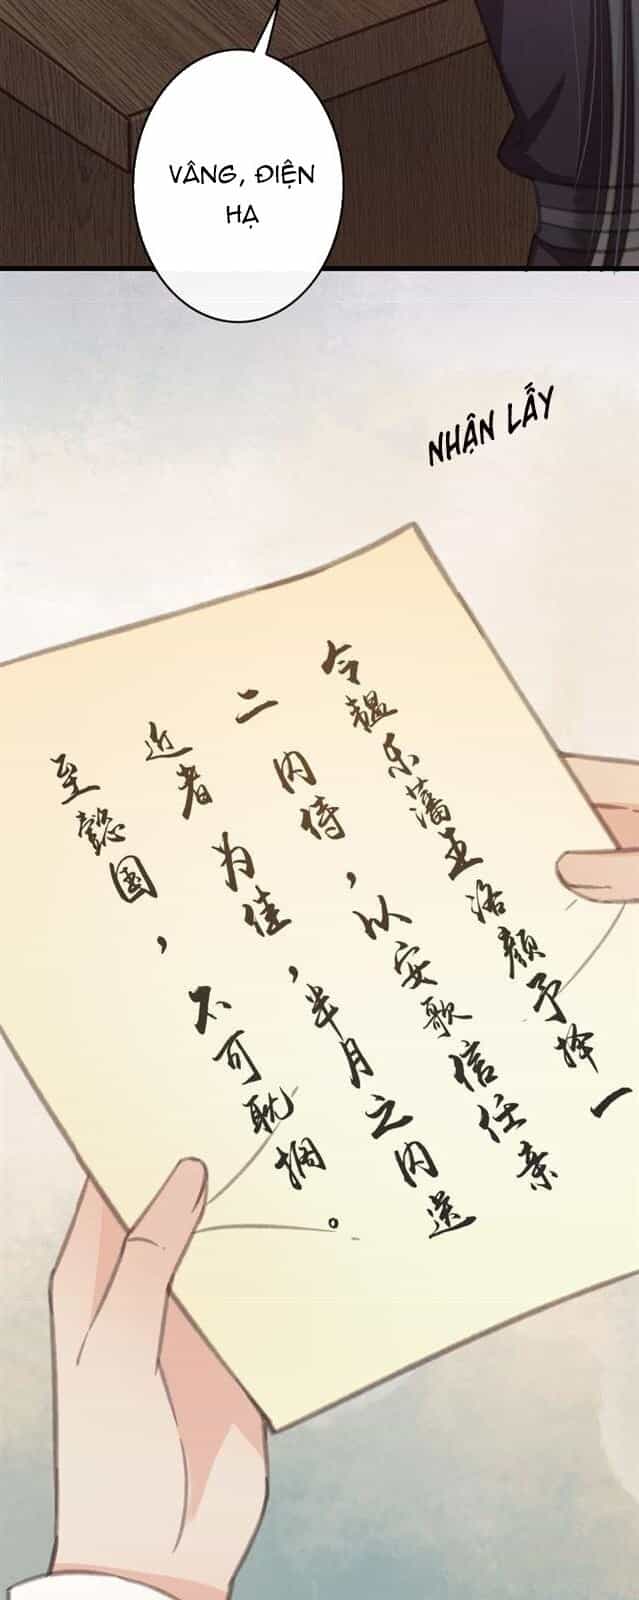 VÂNG, ĐIỆN
HẠ
NHẬN LẤY
令韫乐藩王洛颜予择一
二内侍，以安歌信任亲
近者为佳，半月之内送
至懿国，不可耽搁。